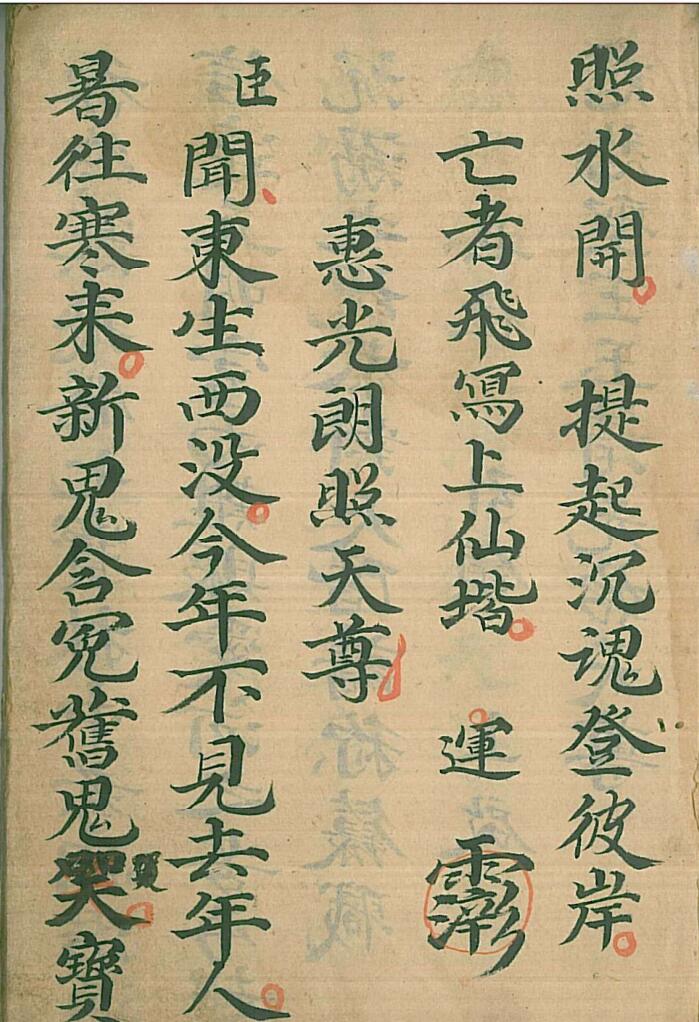 照水開 提起沉魂登彼岸
亡者飛冩上仙堦 運
惠光朗照天尊
臣聞東生西没今年不見去年人
暑徃寒来新鬼含冤舊鬼哭寶